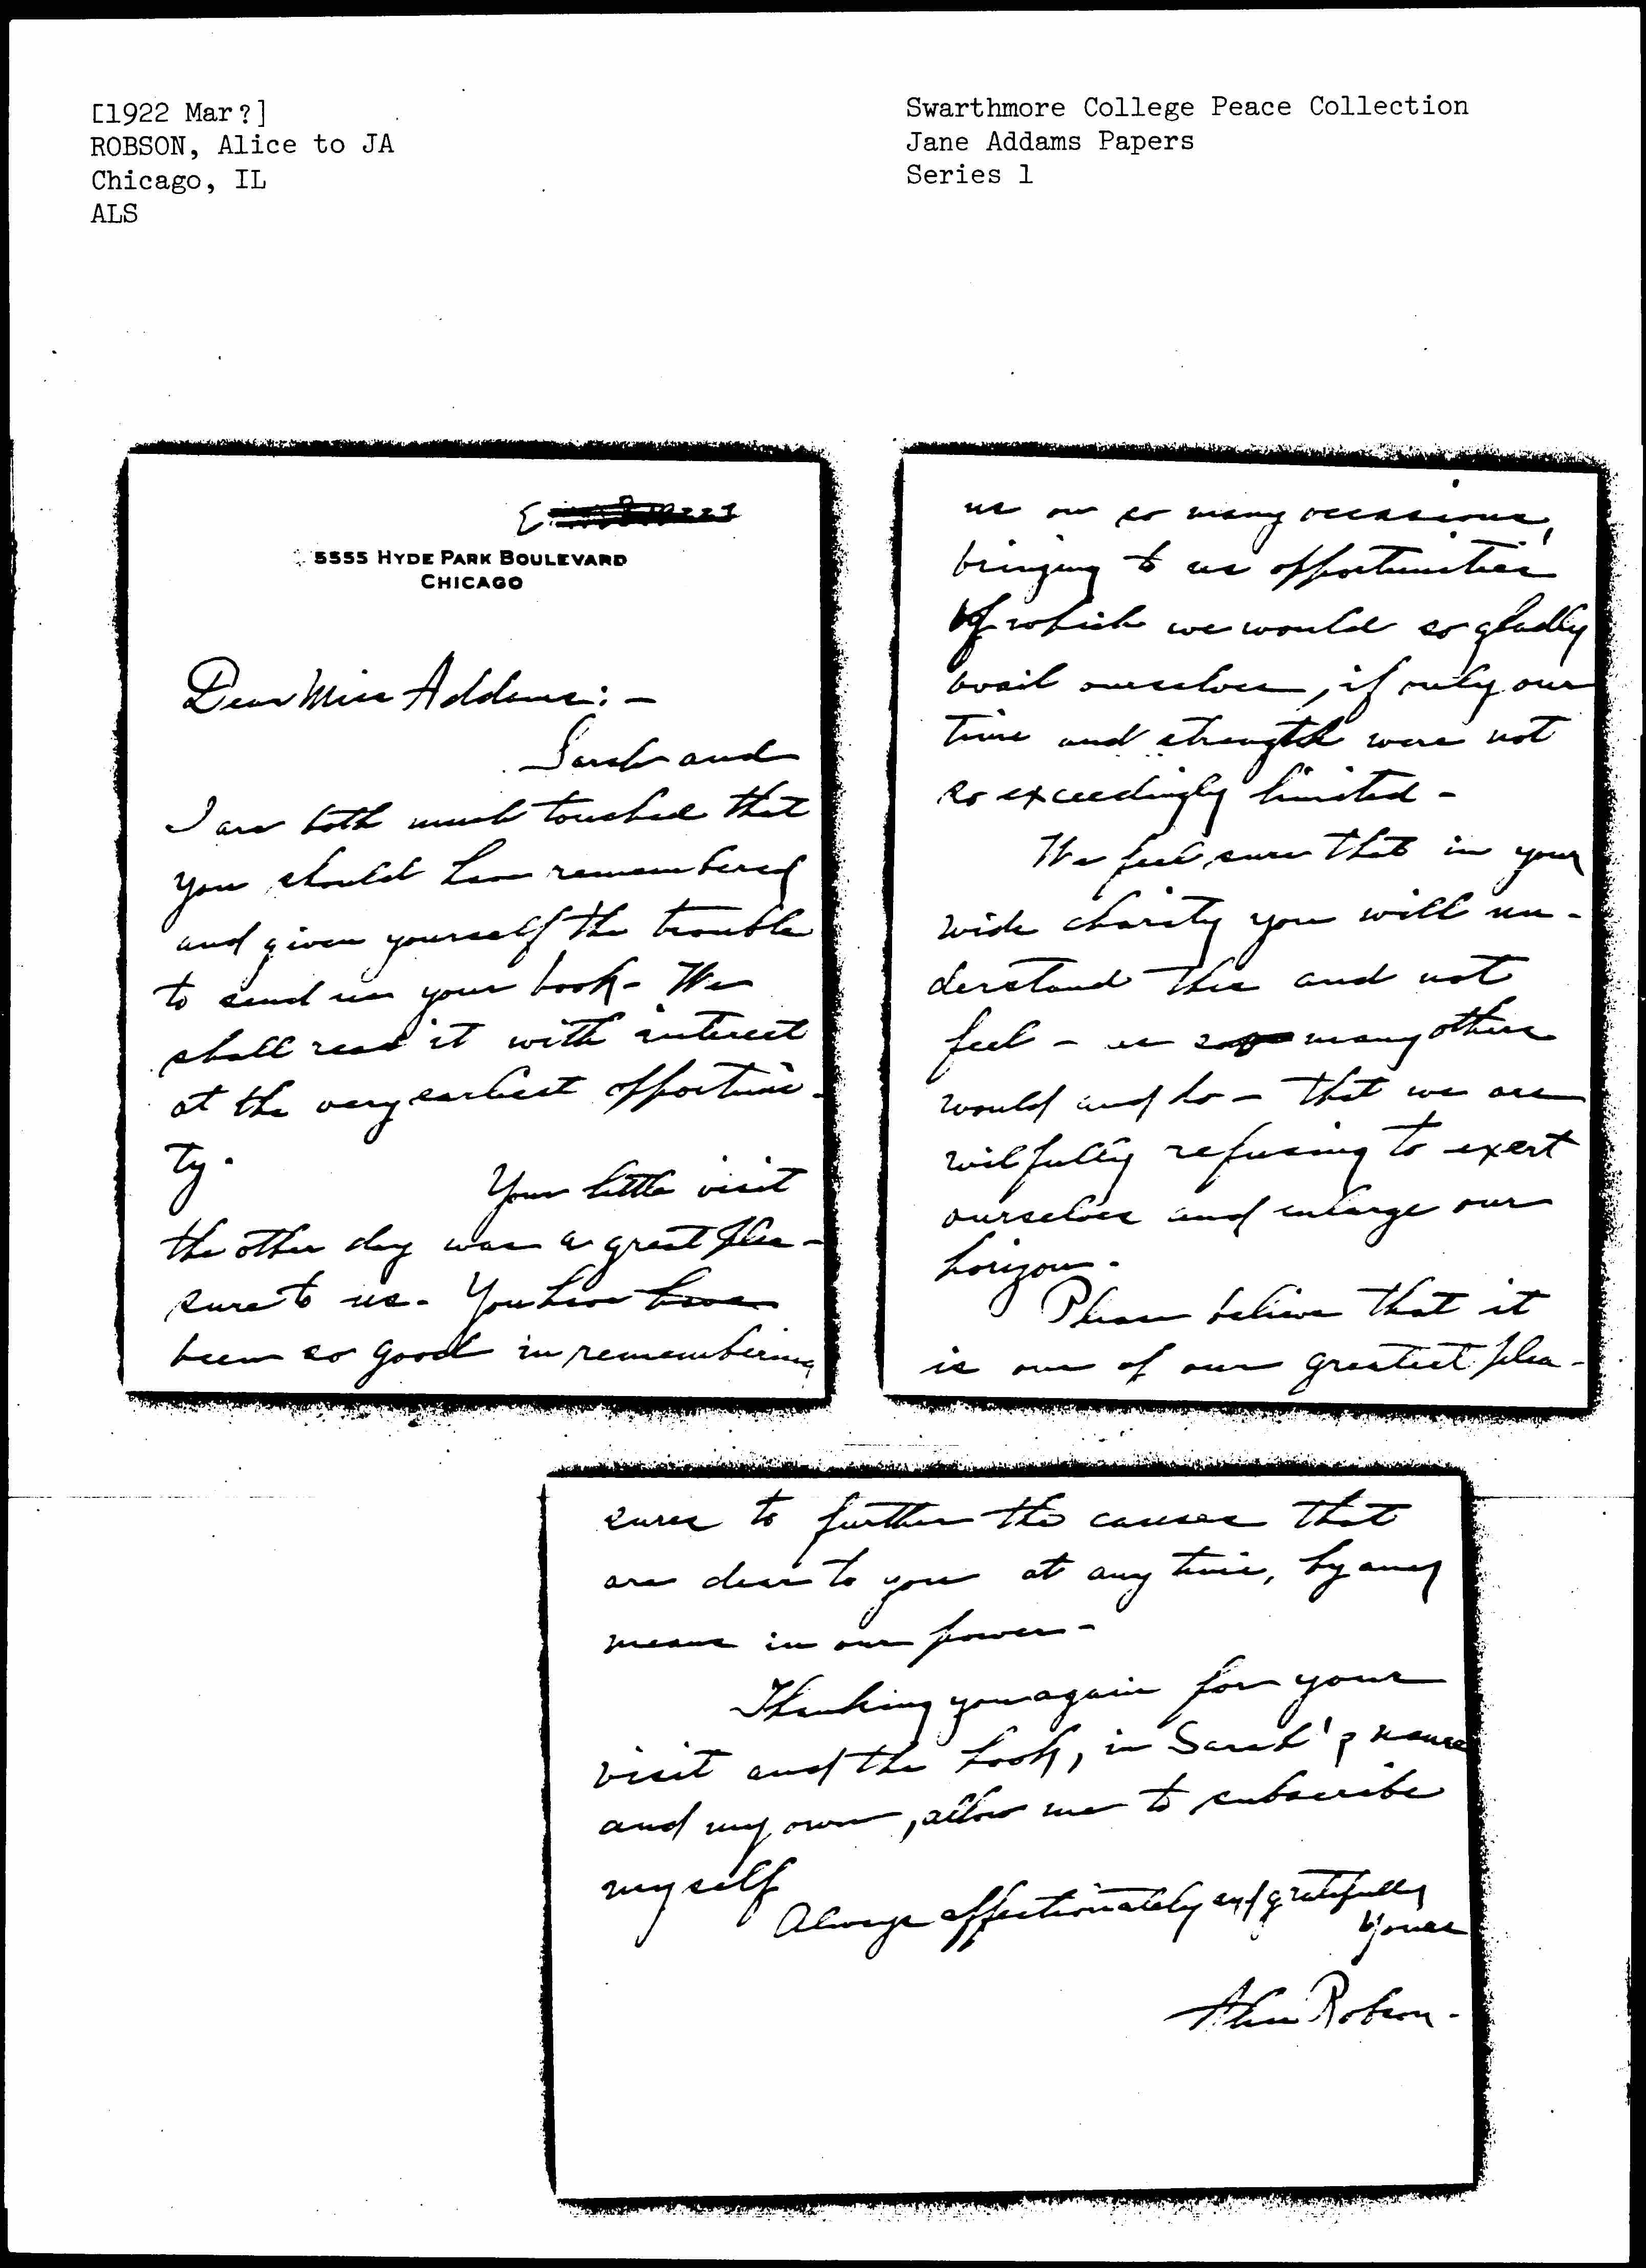 [1922 Mar?]
ROBSON, Alice to JA
Chicago, IL
ALS
Swarthmore College Peace Collection
Jane Addams Papers
Series 1
5555 HYDE PARK BOULEVARD
CHICAGO
Dear Miss Addams: -
Sarah and
I are both much touched that
you should have remembered
and given yourself the trouble
to send us your book - We
shall read it with interest
at the very earliest opportuni-
ty.
Your little visit
the other day was a great plea-
sure to us. You have have
been so good in remembering
us on so many occasions,
bringing to us opportunities
of which we would so gladly
avail ourselves, if only our
time and strength were not
so exceedingly limited -
We feel sure that in your
wide charity you will un-
derstand this and not
feel - as so many others
would and do - that we are
wilfully refusing to exert
ourselves and enlarge our
horizon.
Please believe that it
is one of our greatest plea-
sures to further the causes that
are dear to you at any time, by any
means in our power -
Thanking you again for your
visit and the book, in Sarah's name
and my own, allow me to subscribe
myself
Always affectionately and gratefully
Yours
Alice Robson -